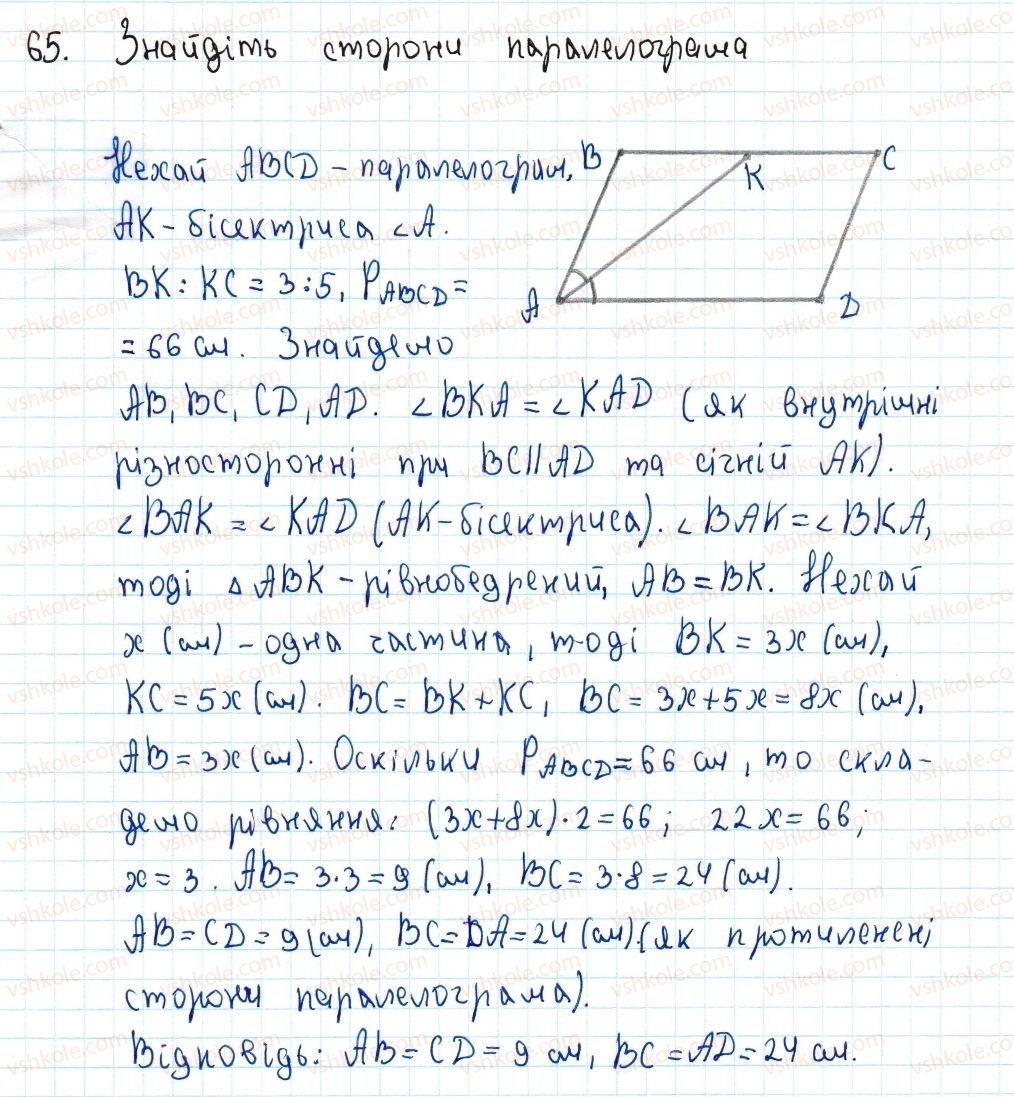 65. Знайдіть сторони паралелограма
Нехай ABCD – паралелограм,
AK – бісектриса ∠A.
BK : KC = 3 : 5, P_ABCD =
= 66 см. Знайдемо
AB, BC, CD, AD. ∠BKA = ∠KAD (як внутрішні
різносторонні при BC || AD та січній AK).
∠BAK = ∠KAD (AK – бісектриса). ∠BAK = ∠BKA,
тоді △ ABK – рівнобедрений, AB = BK. Нехай
x (см) – одна частина, тоді BK = 3x (см),
KC = 5x (см). BC = BK + KC, BC = 3x + 5x = 8x (см),
AB = 3x (см). Оскільки P_ABCD = 66 см, то скла-
демо рівняння: (3x + 8x) · 2 = 66; 22x = 66;
x = 3. AB = 3 · 3 = 9 (см), BC = 3 · 8 = 24 (см).
AB = CD = 9 (см), BC = DA = 24 (см) (як протилежні
сторони паралелограма).
Відповідь: AB = CD = 9 см, BC = AD = 24 см.
B
K
C
A
D
vshkole.com